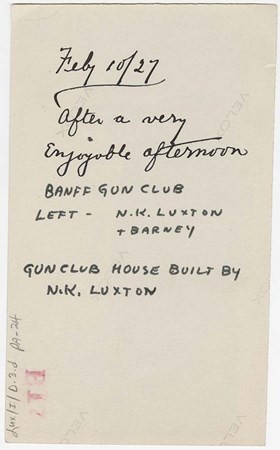 Feby 10/27
After a very
Enjoyable afternoon
BANFF GUN CLUB
LEFT - N.K. LUXTON
+ BARNEY
GUN CLUB HOUSE BUILT BY
N.K. LUXTON
Lux/I/D-3-d PA-24
VELOX